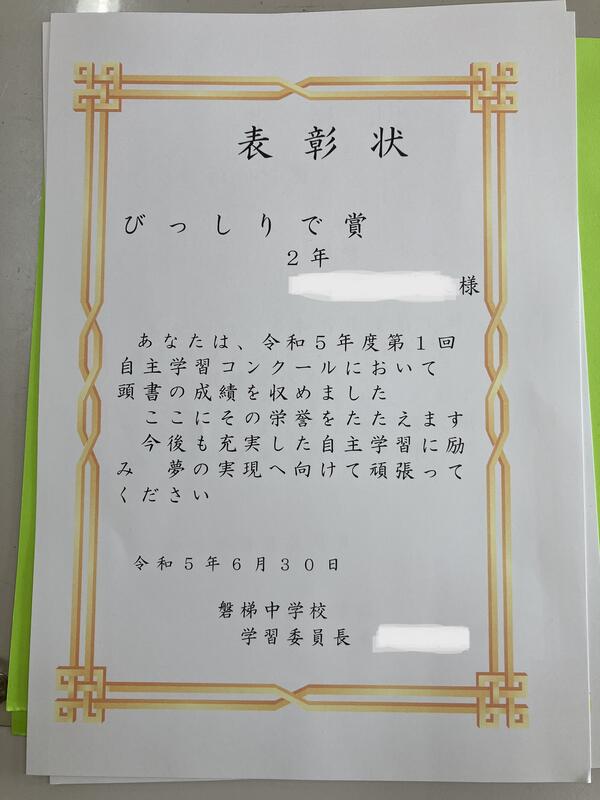 表彰状
びっしりで賞
２年
様
あなたは、令和５年度第１回
自主学習コンクールにおいて
頭書の成績を収めました
ここにその栄誉をたたえます
今後も充実した自主学習に励
み　夢の実現へ向けて頑張って
ください
令和５年６月３０日
磐梯中学校
学習委員長